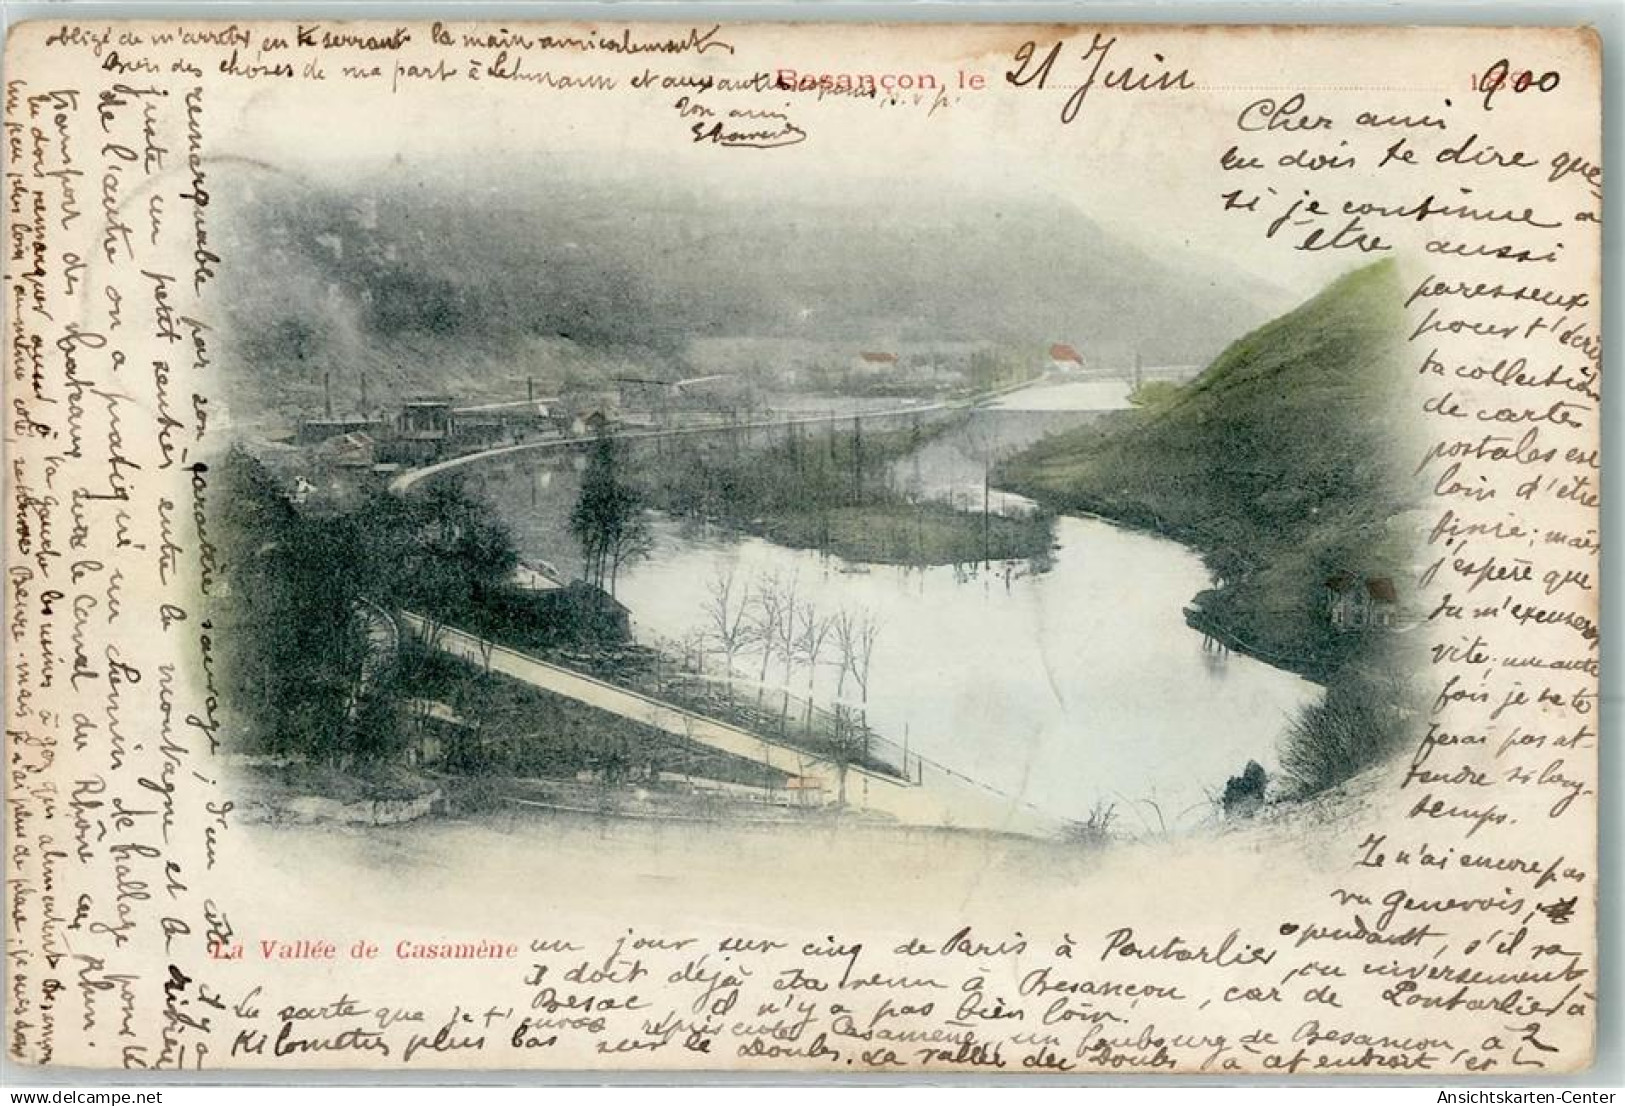 Besançon, le 21 Juin 900
Cher ami
tu dois te dire que
si je continue a
être aussi
paresseux
pour t'écrire
ta collection
de cartes
postales est
loin d'être
finie; mais
j'espère que
tu m'excuseras
vite; une autre
fois je ne te
ferai pas at-
tendre si long-
temps.
Je n'ai encore pas
vu Genevois,
cependant, s'il va
un jour sur cinq de Paris à Pontarlier, ou inversement
il doit déjà être venu à Besançon, car de Pontarlier à
Besac il n'y a pas bien loin.
La carte que je t'envoie représente Casamène, un faubourg de Besançon, à 2
Kilomètres plus bas sur le Doubs. La vallée du Doubs à cet endroit est
remarquable par son caractère sauvage; d'un côté il y a
juste un petit sentier entre la montagne et la rivière
de l'autre on a pratiqué un chemin de hallage pour le
transport des bateaux sur le canal du Rhône au Rhin.
tu dois remarquer aussi à ta gauche les usines à gaz qui alimentent Besançon
un peu plus loin, au même côté, se trouve Beure. mais je n'ai plus de place; je suis donc
obligé de m'arrêter en te serrant la main amicalement
Bien des choses de ma part à Lehmann et aux autres copains, s. v. p.
Ton ami
La Vallée de Casamène
Ansichtskarten-Center